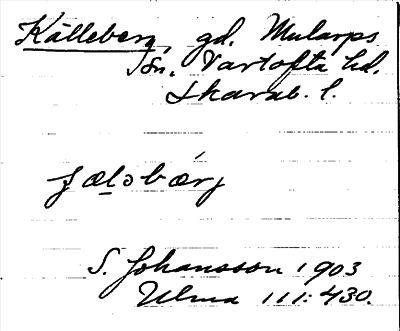 Källeberg, gd. Mularps
sn. Vartofta hd.
Skarab. l.
S. Johansson 1903
Ulma 111:430.